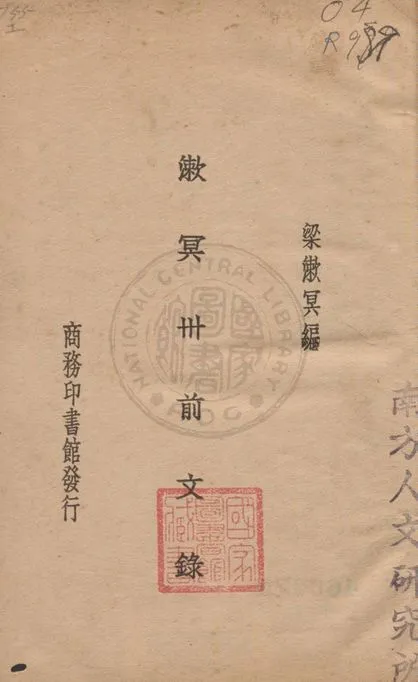 04
南方人文研究所
梁漱冥編
漱冥卅前文錄
商務印書館發行
NATIONAL CENTRAL LIBRARY
國家圖書館
ROC
國家圖書館藏書